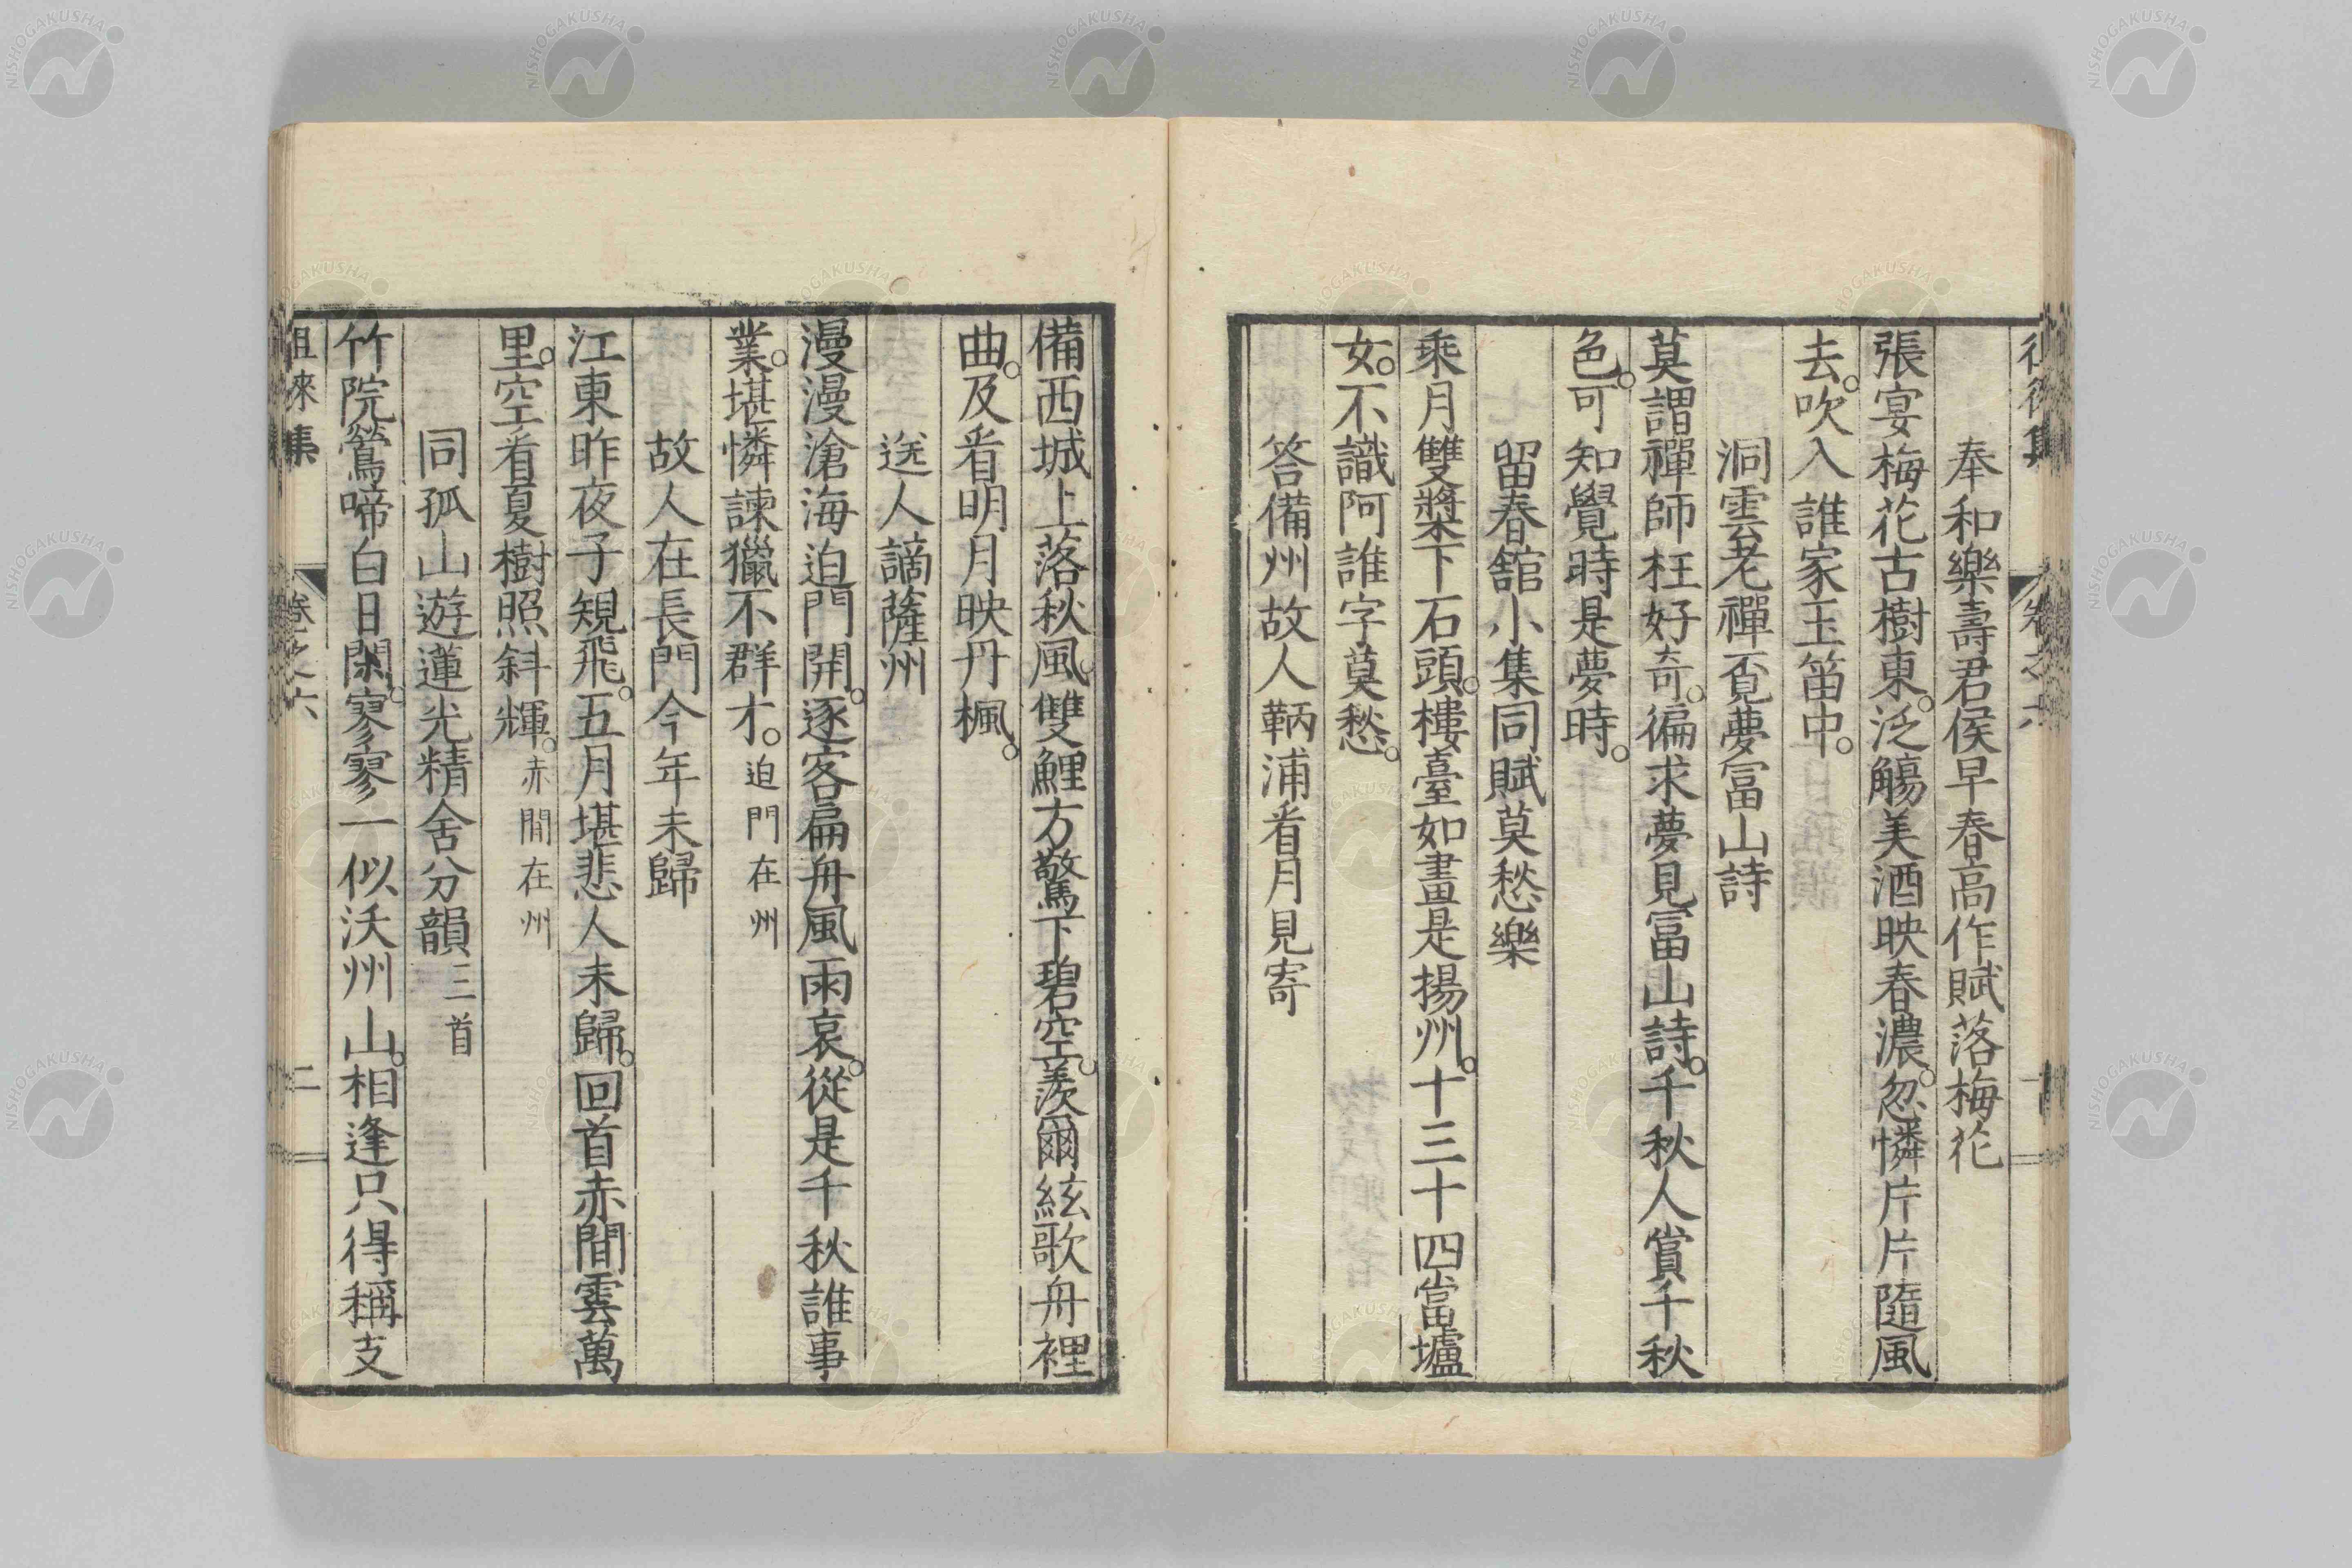 奉和樂壽君侯早春高作賦落梅花
張宴梅花古樹東。泛觴美酒映春濃。忽憐片片隨風
去。吹入誰家玉笛中。
洞雲老禪覔夢冨山詩
莫謂禪師枉好奇。徧求夢見冨山詩。千秋人賞千秋
色。可知覺時是夢時。
留春舘小集同賦莫愁樂
乘月雙槳下石頭。樓臺如畫是揚州。十三十四當壚
女。不識阿誰字莫愁。
答備州故人鞆浦看月見寄
備西城上落秋風。雙鯉方驚下碧空。羨爾絃歌舟裡
曲。及看明月映丹楓。
送人謫薩州
漫漫滄海迫門開。逐客扁舟風雨哀。從是千秋誰事
業。堪憐諫獵不群才。迫門在州
故人在長門今年未歸
江東昨夜子規飛。五月堪悲人未歸。回首赤間雲萬
里。空看夏樹照斜輝。赤間在州
同孤山遊蓮光精舍分韻三首
竹院鶯啼白日閑。寥寥一似沃州山。相逢只得稱支
徂徠集 卷之六 二
NISHOGAKUSHA